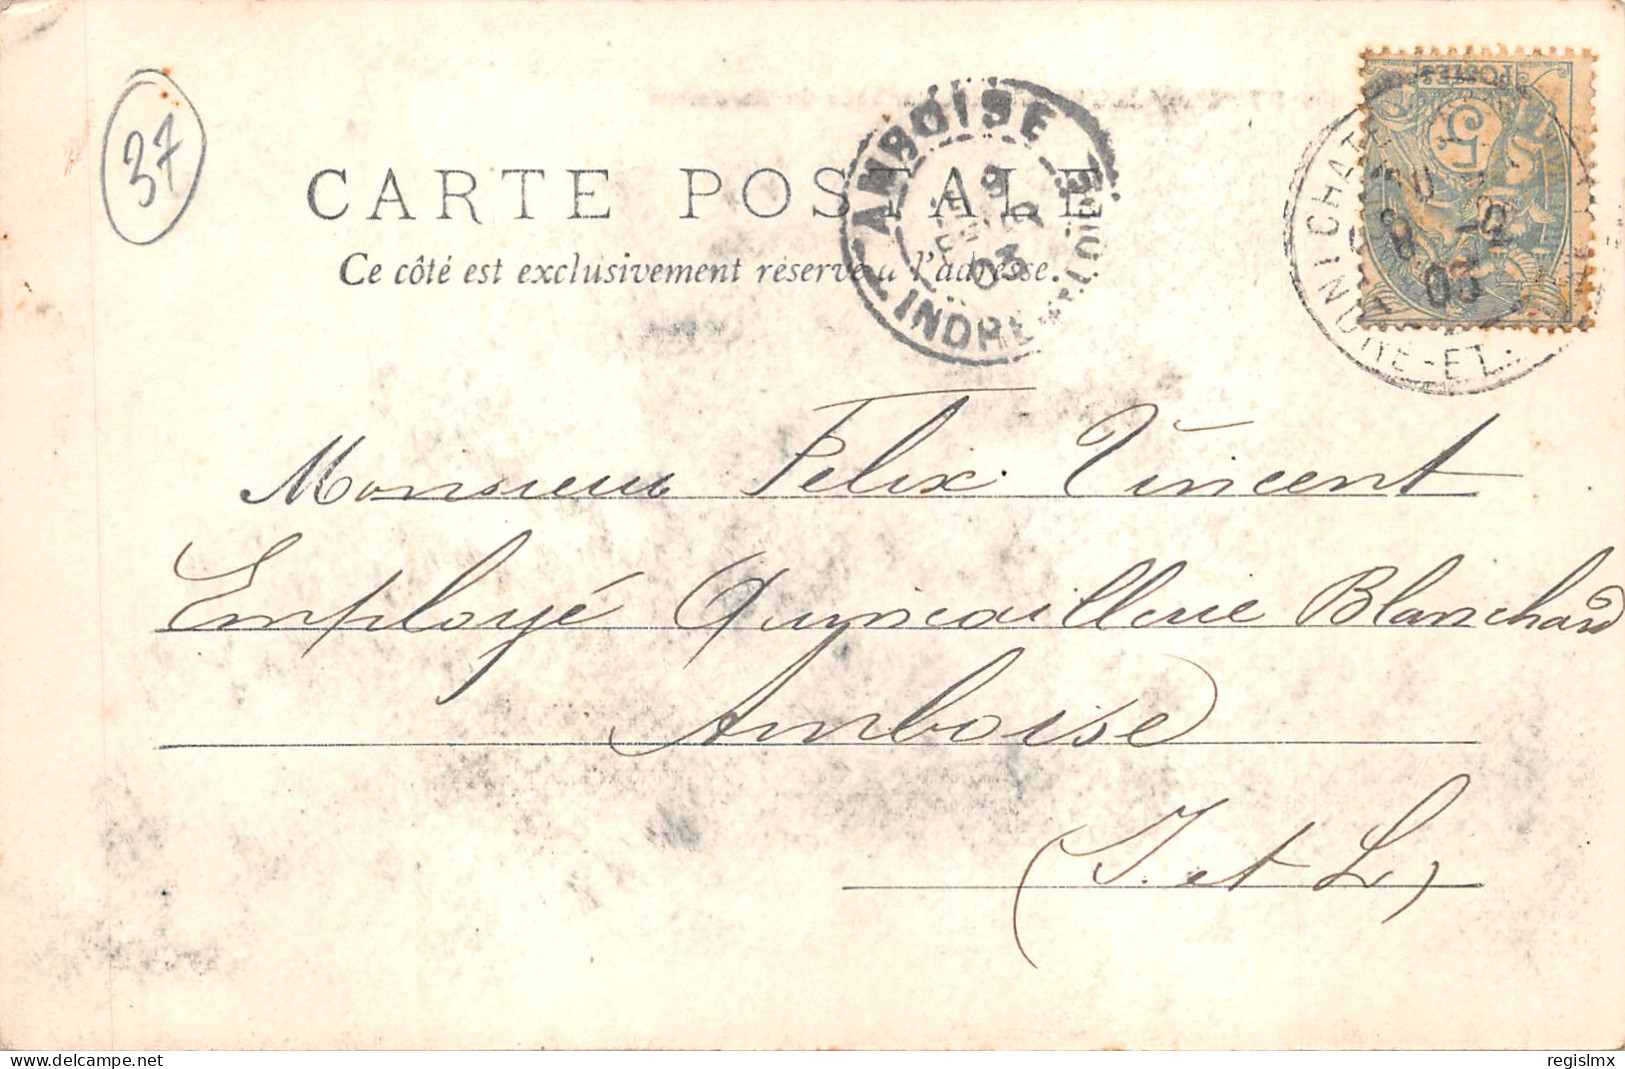 37
CARTE POSTALE
Ce côté est exclusivement réservé à l'adresse.
AMBOISE
INDRE-ET-LOIRE
03
POSTES
5
CHAT
INDRE-ET-L
8 -2
03
Monsieur Felix Vincent
Employé Quyncaillerie Blanchard
Amboise
(I. et L)
www.delcampe.net
regislmx